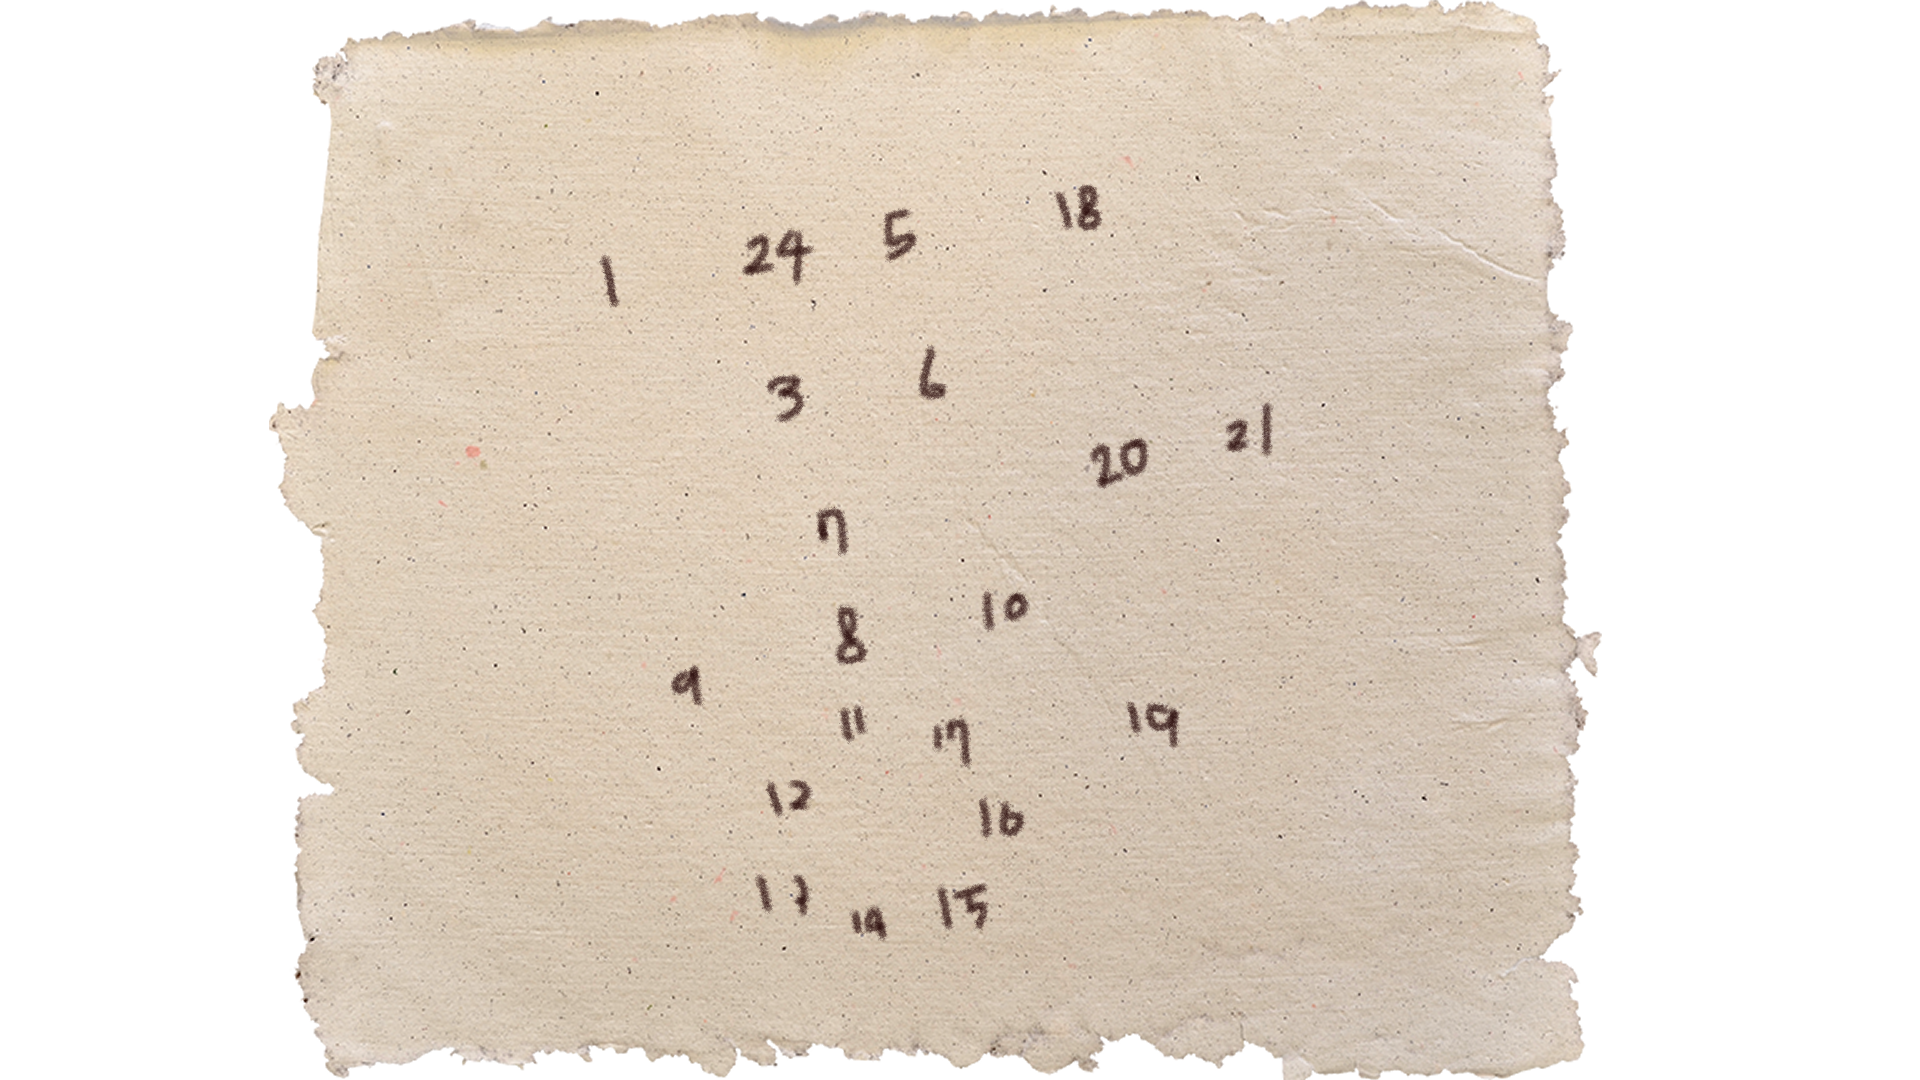 18
1 24 5
3 6
20 21
7
8 10
9
11 17 19
12 16
13 14 15